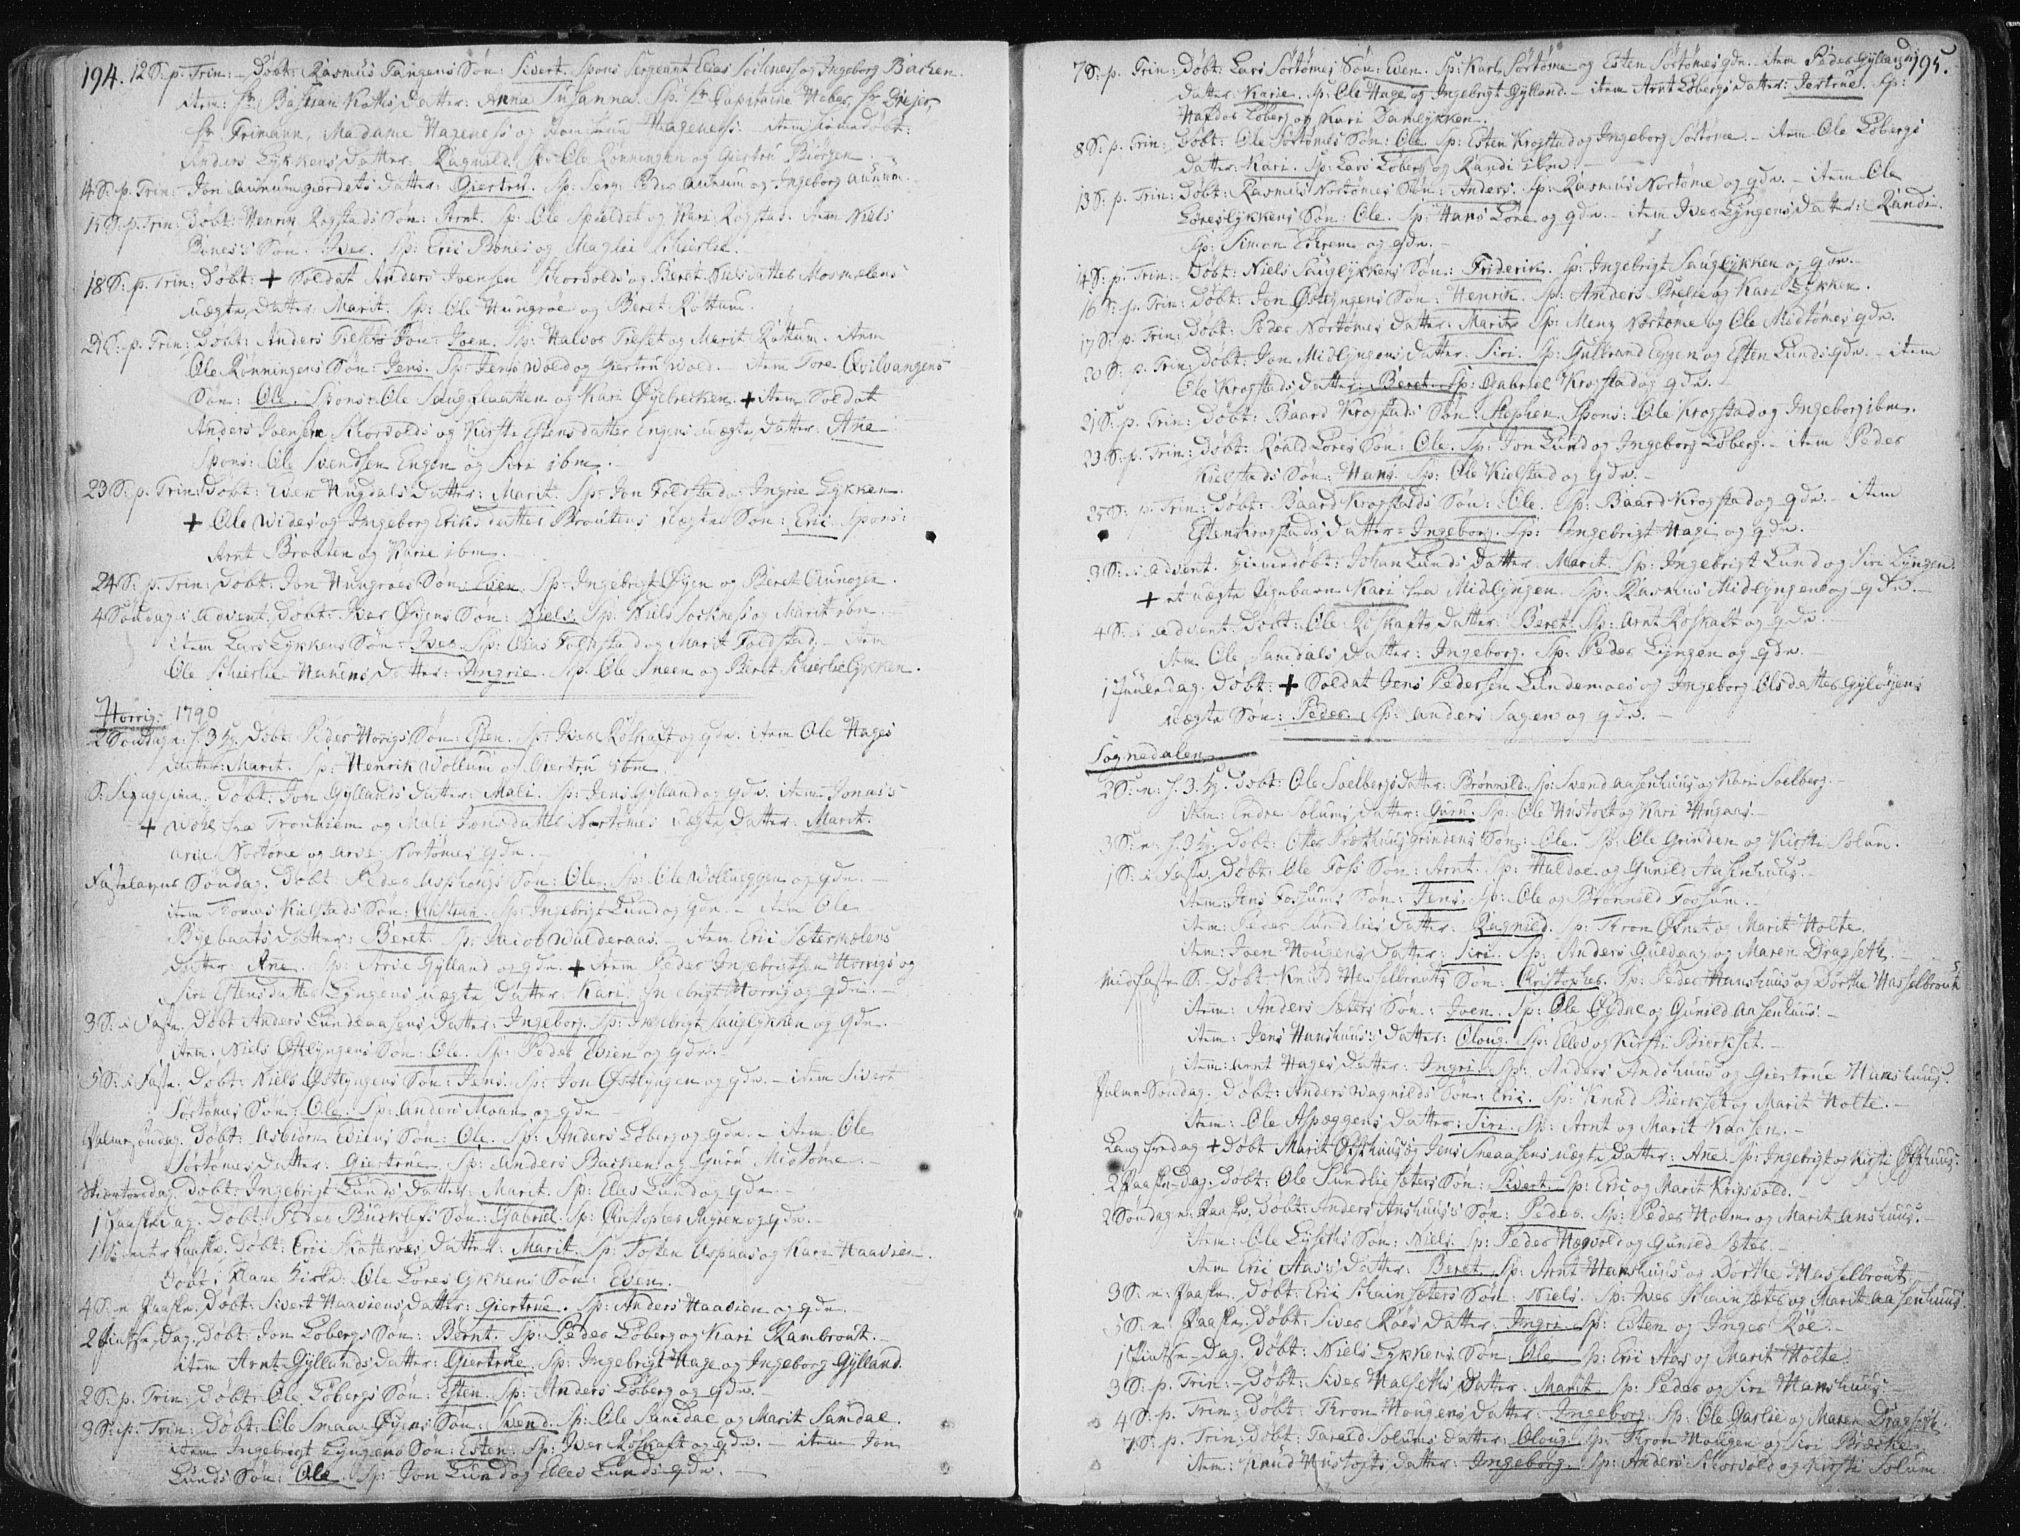 194. 12 S: p. Trin: Døbt: Rasmus Tangens Søn: Sivert. Spons Sergeant Elias Sokness og Ingeborg Bachen.
item: Hr Bastian Koths Datter: Anna Susanna. Sp: Hr Capitaine Weber, Hr Dreier,
Hr Frimann, Madame Hageness og Jomfruu Hageness. item hiemedøbt:
Anders Lykkens Datter: Ragnild. Sp: Ole Rønningen og Giertru Biørgen.
14 S: p. Trin: Jon aunumgierdets Datter: Giertru. Sp: Serg: Peder aunum og Ingeborg aunum.
15 S: p. Trin: Døbt: Henrik Rogstads Søn: Arnt. Sp: Ole Spieldet og Kari Rogstad. item Niels
Bones's Søn: Iver. Sp: Eric Bones og Magli Schierlie.
18 S: p. Trin: Døbt: + Soldat Anders Joensen Schorvolds og Beret Nielsdatter Mosmelens
uægte Datter: Marit. Sp: Ole Hungrøe og Beret Rottum.
21 S: p. Trin: Døbt: Anders Fiesets Søn: Joen. Sp: Halvor Fieset og Marit Rottum. item
Ole Rønningens Søn: Jens. Sp: Jens Wold og Giertru Wold. item Tore Qvilvangens
Søn: Ole. Spons: Ole Saugflaatten og Kari Øyebrecken. + item Soldat
Anders Joensen Schorvolds og Kirsti Estensdatter Engens uægte Datter: Ane
Spons: Ole Svendsen Engen og Siri ibm.
23 S: p. Trin: Døbt: Even Hugdals Datter: Marit. Sp: Jon Foldstad og Ingrie Lykken.
+ Ole Wides og Ingeborg Eriksdatter Broutens uægte Søn: Eric. Spons:
Arnt Broutten og Karie ibm.
24 S: p. Trin: Døbt: Jon Hungroes Søn: Even. Sp: Ingebrigt Øyen og Beret Aunøyen.
4 Søndag i Advent. Døbt: Iver Øyens Søn: Niels. Sp: Niels Sockness og Marit ibm.
item Lars Lykkens Søn: Iver. Sp: Elias Foldstad og Marit Foldstad. item
Ole Schierlie Hanens Datter: Ingrie. Sp: Ole Sneen og Beret Schierlielykken.
Horrig: 1790
2 Søndag n: H. 3 K. Døbt: Peder Horrigs Søn: Esten. Sp: Iver Røskaft og qde. item Ole Hages
Datter: Marit. Sp: Henrik Wollum og Giertru ibm.
S: Septuagesima. Døbt: Jon Gyllands Datter: Mali. Sp: Jens Gylland og qde. item Jonas
+ Wohl fra Tronhiem og Mali Jonsdatter Nortømes uægte Datter: Marit.
Arie Nortøme og Arie Nortømes qde.
Fastelavns Søndag. Døbt: Peder Asphougs Søn: Ole. Sp: Ole Wolleggen og qde.
item Tomas Kielstads Søn: Christian. Sp: Ingebrigt Lund og qde. item Ole
Byebaats Datter: Beret. Sp: Jacob Walderaas. item Eric Sætermelens
Datter: Ane. Sp: Arne Gylland og qde. + item Peder Ingebrigtsen Horrigs og
Siri Estensdatter Lyngens uægte Datter: Kari. Ingebrigt Horrig og qde.
3 S: i Faste. Døbt Anders Lundeaasens Datter: Ingeborg. Sp: Ingebrigt Sauglykken og qde.
item: Niels Østlyngens Søn: Ole. Sp: Peder Evien og qde.
5 S: i Faste. Døbt: Niels Østlyngens Søn: Jens. Sp: Jon Østlyngen og qde. item Sivert
Sørtømes Søn: Ole. Sp: Anders Moan og qde
Palmesøndag. Døbt: Asbiørn Eviens Søn: Ole. Sp: Anders Løberg og qde. item Ole
Sørtømes Datter: Giertrue. Sp: Anders Backen og Guru Midtøme.
Skiærtorsdag. Døbt: Ingebrigt Lunds Datter: Marit. Sp: Elias Lund og qde.
1 Paaskedag. Døbt: Peder Buskleps Søn: Gabriel. Sp: Christopher Myren og qde.
1 S: efter Paaske. Døbt: Eric Skotteroes Datter: Marit. Sp: Tosten Aspaas og Kari Haavien.
Døbt i Flaae Kirke: Ole Loreslykkens Søn: Even.
4 S: n. Paaske. Døbt: Sivert Haaviens Datter: Giertrue. Sp: Anders Haavien og qde.
2 Pintse Dag. Døbt: Jon Løbergs Søn: Bernt. Sp: Peder Løberg og Kari Krambrout.
item Arnt Gyllands Datter: Giertrue. Sp: Ingebrigt Hage og Ingeborg Gylland.
2 S: p. Trin: Døbt: Ole Løbergs Søn: Esten. Sp: Anders Løberg og qde.
3 S: p. Trin: Døbt: Ole Smaa Øyens Søn: Svend. Sp: Ole Samdal og Marit Samdal.
item Ingebrigt Lyngens Søn: Esten. Sp: Iver Røskaft og qde. item Jon
Lunds Søn: Ole. Sp: Jon Lund og Elles Lunds qde.
195.
7 S: p. Trin: Døbt: Lars Sørtømes Søn: Even. Sp: Karl Sørtøme og Esten Sørtømes qde. item Peder Gyllands
Datter: Karie. Sp: Ole Hage og Ingebrigt Gylland. item Arnt Løbergs Datter: Jertrue. Sp:
Hafdor Løberg og Kari Damlykken.
8 S: p. Trin: Døbt: Ole Sørtømes Søn: Ole. Sp: Esten Krogstad og Ingeborg Sørtøme. item Ole Løbergs
Datter: Kari. Sp: Lars Løberg og Randi ibm.
13 S: p. Trin: Døbt: Rasmus Nortømes Søn: Anders. Sp: Rasmus Nortøme og qde. item Ole
Loreslykkens Søn: Ole. Sp: Hans Lore og qde. item Iver Lyngens Datter: Randi.
Sp: Simon Eckrem og qde.
14 S: p. Trin: Døbt: Niels Sauglykkens Søn: Friderik. Sp: Ingebrigt Sauglykken og qde.
16 S: p. Trin: Døbt: Jon Østlyngens Søn: Henrik. Sp: Anders Brelie og Kari Lykken.
17 S: p. Trin: Døbt: Peder Nortømes Datter: Marit. Sp: Menz Nortøme og Ole Midtømes qde.
20 S: p. Trin: Døbt: Jon Midlyngens Datter: Siri. Sp: Gulbrand Eggen og Esten Lunds qde. item
Ole Krogstads Datter: Beret. Sp: Gabriel Krogstad og qde.
21 S: p. Trin: Døbt: Baard Krogstads Søn: Stephen. Spons: Ole Krogstad og Ingeborg ibm.
23 S: p. Trin: Døbt: Roald Lores Søn: Ole. Sp: Jon Lund og Ingeborg Løberg. item Peder
Kielstads Søn: Hans. Sp: Ole Kielstad og qde.
25 S: p. Trin: Døbt: Baard Krogstads Søn: Ole. Sp: Baard Krogstad og qde. item
Esten Krogstads Datter: Ingeborg. Sp: Ingebrigt Hage og qde.
3 S: i Advent. Hiemedøbt: Johan Lunds Datter: Marit. Sp: Ingebrigt Lund og Siri Lyngen.
+ et uægte Pigebarn Kari fra Midlyngen. Sp: Rasmus Midlyngen og qde.
4 S: i Advent. Døbt: Ole Røskafts Datter: Beret. Sp: Arnt Røskaft og qde.
item Ole Samdals Datter: Ingeborg. Sp: Peder Lyngen og qde.
1 Juuledag. Døbt: + Soldat Jens Pedersen Lundemoes og Ingeborg Olsdatter Gyløyens
uægte Søn: Peder. Sp: Anders Sagen og qde.
Sognedalen
2 S: n: H. 3. K. Døbt: Ole Soelbergs Datter: Brønnild. Sp: Svend Aasenhuus og Kari Soelberg.
item: Endre Solums Datter: Guru. Sp: Ole Hustoft og Kari Hugaas.
3 S: n: H. 3 K: Døbt: Otter Præsthuusgrindens Søn: Ole. Sp: Ole Grinden og Kirsti Solum.
1 S: i Faste. Døbt: Ole Foss Søn: Arnt. Sp: Haldoe og Gunild Aasenhuus.
item: Jens Fossums Søn: Jens. Sp: Ole og Brønnild Fossum.
item: Peder Lundlies Datter: Ragnild. Sp: Tron Øknet og Marit Holte.
item: Joen Hougens Datter: Siri. Sp: Anders Guldaas og Maren Dragseth.
Midfaste S: Døbt: Knud Hesselbrouts Søn: Christopher. Sp: Peder Hanshuus og Dorthe Hasselbrout
item: Anders Sæters Søn: Joen. Sp: Ole Eyene og Gunild Aasenhuus.
item: Jens Hanshuus's Datter: Oloug. Sp: Eller og Kirsti Bierkset.
item: Arnt Hages Datter: Ingri. Sp: Anders Andshuus og Giertrue Hanshuus.
Palme Søndag. Døbt: Anders Wagnilds Søn: Eric. Sp: Knud Bierkset og Marit Holte.
item: Ole Aspeggens Datter: Siri. Sp: Arnt og Marit Kaasen.
Langfredag + Døbt Marit Østhuus og Jens Sneaasens uægte Datter: Ane. Sp: Ingebrigt og Kirsti Østhuus.
2 Paaske Dag. Døbt: Ole Lundlie Sæters Søn: Sivert. Sp: Eric og Marit Krigsvold.
2 Søndag n: Paaske. Døbt: Anders Anshuus's Søn: Peder. Sp: Peder Holm og Marit Anshuus.
item: Ole Eyseths Søn: Niels. Sp: Peder Hovold og Gunild Sæter.
item Eric Aas's Datter: Beret. Sp: Arnt Hanshuus og Dorthe Hasselbrout.
3 S: n: Paaske. Døbt: Eric Schainsæters Søn: Niels. Sp: Iver Schainsæter og Marit Aasenhuus.
5 S: n: Paaske. Døbt: Siver Roes Datter: Ingri. Sp: Esten og Inger Roe.
1 Pintse Dag. Døbt: Niels Lykkens Søn: Ole. Sp: Eric Aas og Marit Holte.
3 S: p. Trin: Døbt: Siver Halseths Datter: Marit. Sp: Peder og Siri Hanshuus.
4 S: p. Trin: Døbt: Tron Hougens Datter: Ingeborg. Sp: Ole Garlie og Maren Dragseth.
7 S: p. Trin: Døbt: Tarald Solums Datter: Oloug. Sp: Tron Hougen og Siri Bræcke.
item: Knud Hustofts Datter: Ingeborg. Sp: Anders Schorvold og Kirsti Solum.